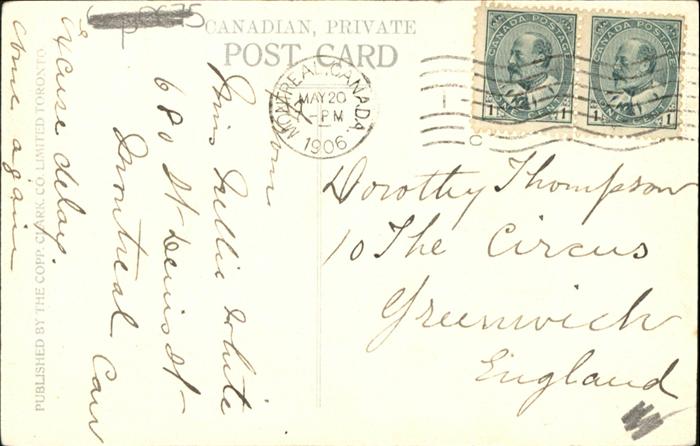 CANADIAN, PRIVATE
POST CARD
MONTREAL, CANADA.
MAY 20
-PM
1906
CANADA POSTAGE
1 ONE CENT 1
CANADA POSTAGE
1 ONE CENT 1
Dorothy Thompson
10 The Circus
Greenwich
England
from
Miss Nellie White
680 St Denis St
Montreal Can
Excuse delay.
Come again
PUBLISHED BY THE COPP, CLARK, CO. LIMITED TORONTO